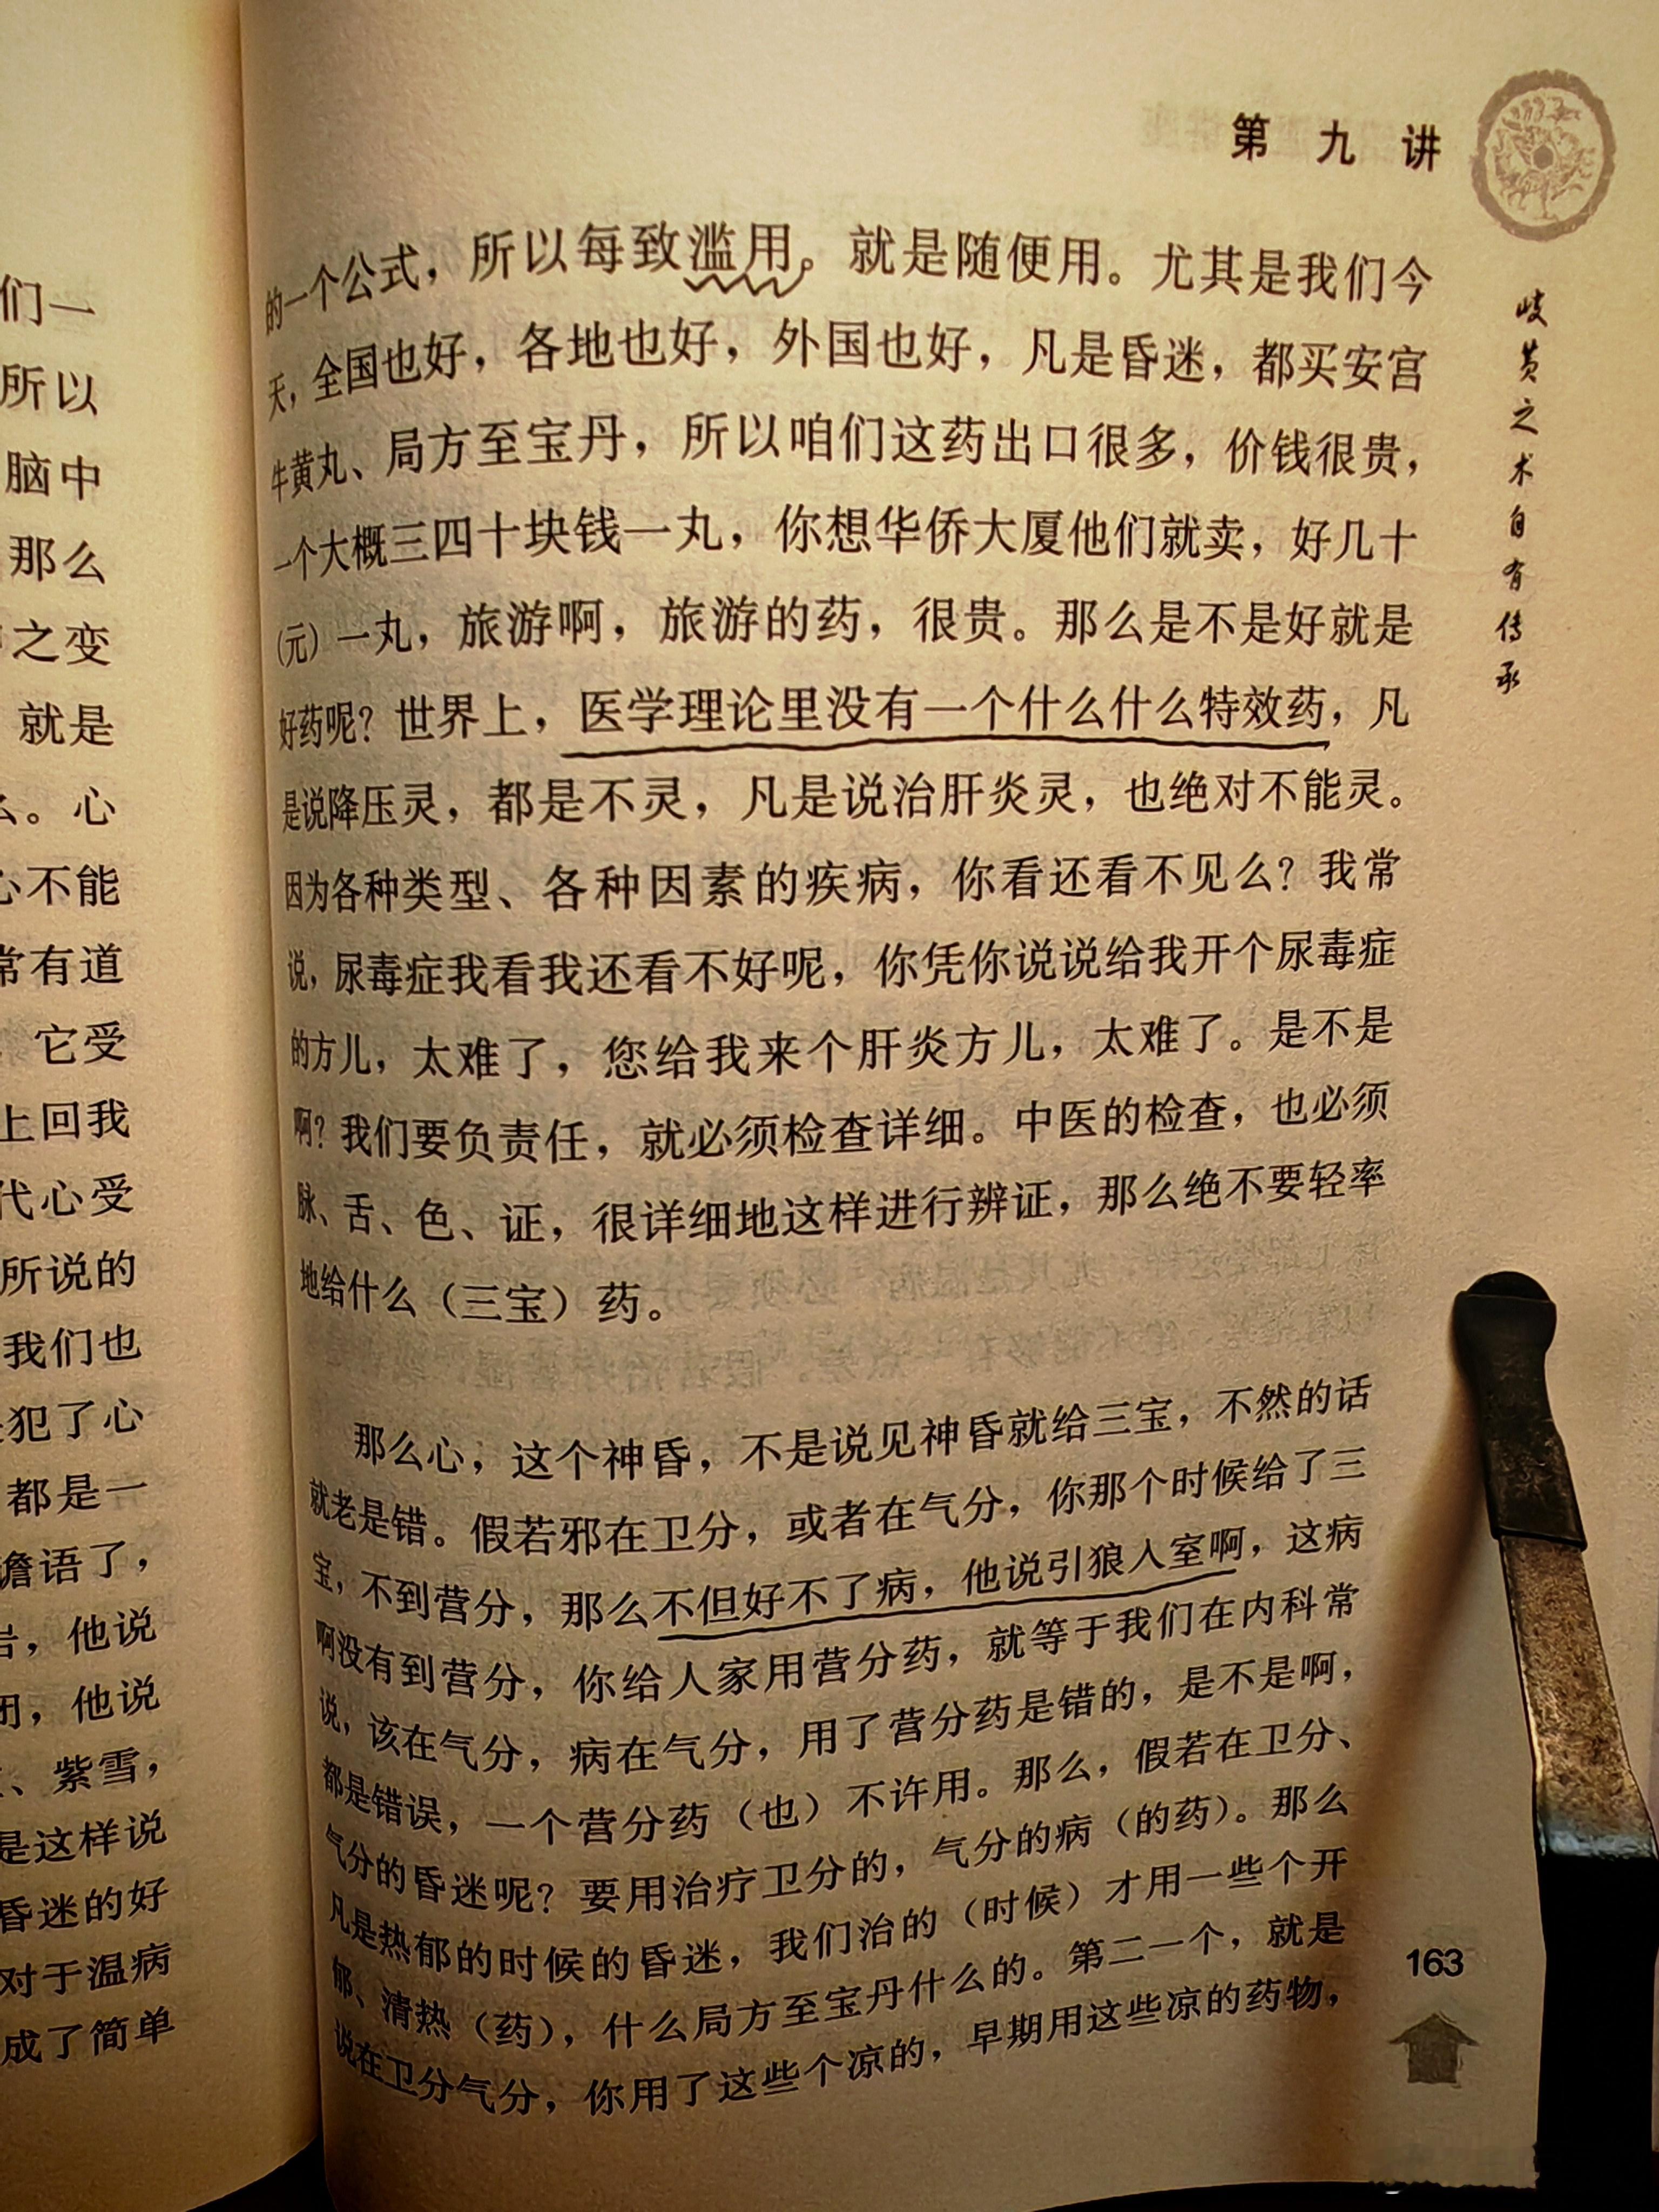 们一
所以
脑中
那么
之变
就是
么。心
心不能
常有道
它受
上回我
代心受
所说的
我们也
犯了心
都是一
谵语了，
，他说
闭，他说
、紫雪，
是这样说
昏迷的好
对于温病
成了简单
第九讲
岐黄之术自有传承
的一个公式，所以每致滥用。就是随便用。尤其是我们今
天，全国也好，各地也好，外国也好，凡是昏迷，都买安宫
牛黄丸、局方至宝丹，所以咱们这药出口很多，价钱很贵，
一个大概三四十块钱一丸，你想华侨大厦他们就卖，好几十
（元）一丸，旅游啊，旅游的药，很贵。那么是不是好就是
好药呢？世界上，医学理论里没有一个什么什么特效药，凡
是说降压灵，都是不灵，凡是说治肝炎灵，也绝对不能灵。
因为各种类型、各种因素的疾病，你看还看不见么？我常
说，尿毒症我看我还看不好呢，你凭你说说给我开个尿毒症
的方儿，太难了，您给我来个肝炎方儿，太难了。是不是
啊？我们要负责任，就必须检查详细。中医的检查，也必须
脉、舌、色、证，很详细地这样进行辨证，那么绝不要轻率
地给什么（三宝）药。
那么心，这个神昏，不是说见神昏就给三宝，不然的话
就老是错。假若邪在卫分，或者在气分，你那个时候给了三
宝，不到营分，那么不但好不了病，他说引狼入室啊，这病
啊没有到营分，你给人家用营分药，就等于我们在内科常
说，该在气分，病在气分，用了营分药是错的，是不是啊，
都是错误，一个营分药（也）不许用。那么，假若在卫分、
气分的昏迷呢？要用治疗卫分的，气分的病（的药）。那么
凡是热郁的时候的昏迷，我们治的（时候）才用一些个开
郁、清热（药），什么局方至宝丹什么的。第二一个，就是
说在卫分气分，你用了这些个凉的，早期用这些凉的药物，
163